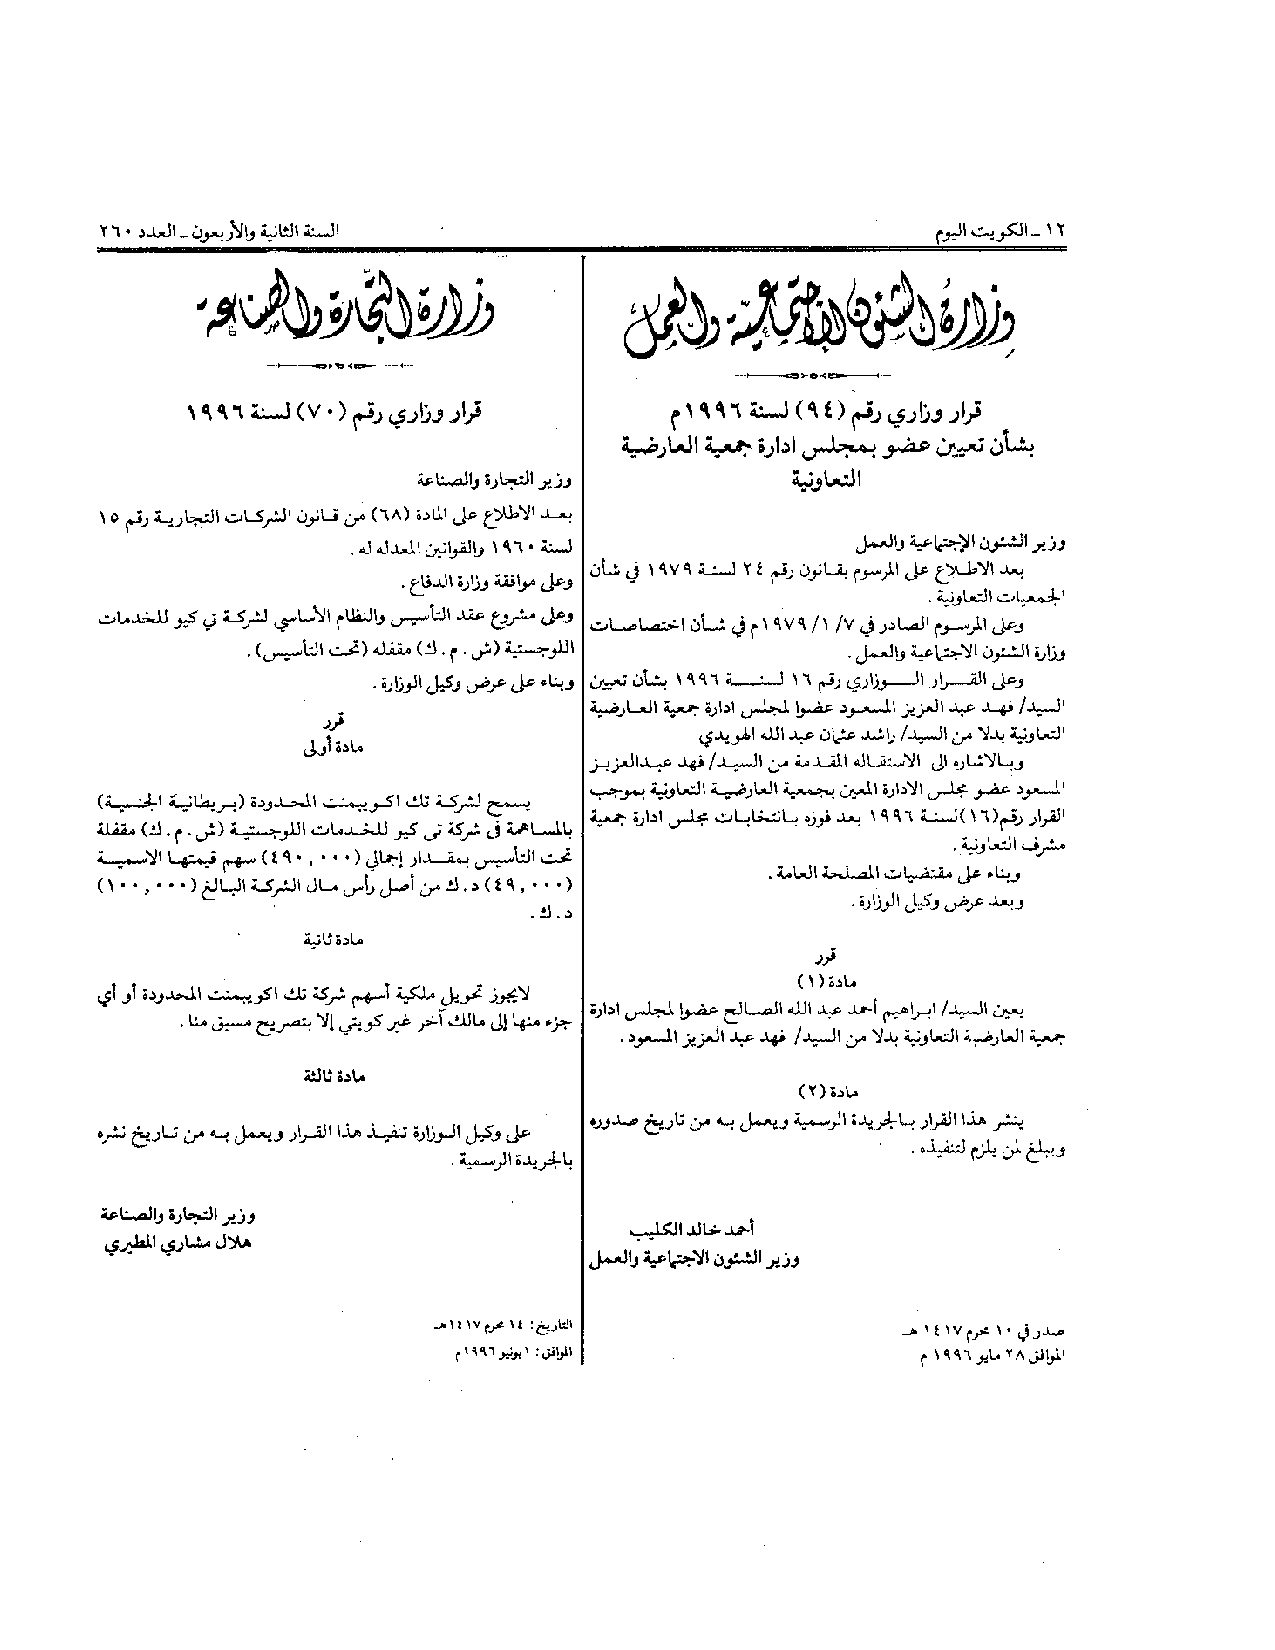 ١٢ - الكويت اليوم
السنة الثانية والأربعون - العدد ٢٦٠
وزارة الشئون الاجتماعية والعمل
قرار وزاري رقم (٩٤) لسنة ١٩٩٦م
بشأن تعيين عضو بمجلس ادارة جمعية العارضية
التعاونية
وزير الشئون الإجتماعية والعمل
بعد الاطلاع على المرسوم بقانون رقم ٢٤ لسنة ١٩٧٩ في شأن
الجمعيات التعاونية .
وعلى المرسوم الصادر في ٧/ ١/ ١٩٧٩م في شأن اختصاصات
وزارة الشئون الاجتماعية والعمل .
وعلى القرار الوزاري رقم ١٦ لسنة ١٩٩٦ بشأن تعيين
السيد/ فهد عبد العزيز المسعود عضوا لمجلس ادارة جمعية العارضية
التعاونية بدلا من السيد/ راشد عثمان عبد الله الهويدي
وبالاشاره الى الاستقاله المقدمة من السيد/ فهد عبدالعزيز
المسعود عضو مجلس الادارة المعين بجمعية العارضية التعاونية بموجب
القرار رقم(١٦)لسنة ١٩٩٦ بعد فوزه بانتخابات مجلس ادارة جمعية
مشرف التعاونية .
وبناء على مقتضيات المصلحة العامة .
وبعد عرض وكيل الوزارة .
قرر
مادة (١)
يعين السيد/ ابراهيم أحمد عبد الله الصالح عضوا لمجلس ادارة
جمعية العارضية التعاونية بدلا من السيد/ فهد عبد العزيز المسعود .
مادة (٢)
ينشر هذا القرار بالجريدة الرسمية ويعمل به من تاريخ صدوره
ويبلغ لمن يلزم لتنفيذه .
أحمد خالد الكليب
وزير الشئون الاجتماعية والعمل
صدر في ١٠ محرم ١٤١٧ هـ
الموافق ٢٨ مايو ١٩٩٦ م
وزارة التجارة والصناعة
قرار وزاري رقم (٧٠) لسنة ١٩٩٦
وزير التجارة والصناعة
بعد الاطلاع على المادة (٦٨) من قانون الشركات التجارية رقم ١٥
لسنة ١٩٦٠ والقوانين المعدله له .
وعلى موافقة وزارة الدفاع .
وعلى مشروع عقد التأسيس والنظام الأساسي لشركة تي كيو للخدمات
اللوجستية (ش . م . ك) مقفله (تحت التأسيس) .
وبناء على عرض وكيل الوزارة .
قرر
مادة أولى
يسمح لشركة تك اكويبمنت المحدودة (بريطانية الجنسية)
بالمساهمة في شركة تى كيو للخدمات اللوجستية (ش . م . ك) مقفلة
تحت التأسيس بمقدار إجمالي (٤٩٠,٠٠٠) سهم قيمتها الاسمية
(٤٩,٠٠٠) د. ك من أصل رأس مال الشركة البالغ (١٠٠,٠٠٠)
د . ك .
مادة ثانية
لايجوز تحويل ملكية أسهم شركة تك اكويبمنت المحدودة أو أي
جزء منها إلى مالك آخر غير كويتي إلا بتصريح مسبق منا .
مادة ثالثة
على وكيل الوزارة تنفيذ هذا القرار ويعمل به من تاريخ نشره
بالجريدة الرسمية .
وزير التجارة والصناعة
هلال مشاري المطيري
التاريخ: ١٤ محرم ١٤١٧هـ
الموافق: ١ يونيو ١٩٩٦م